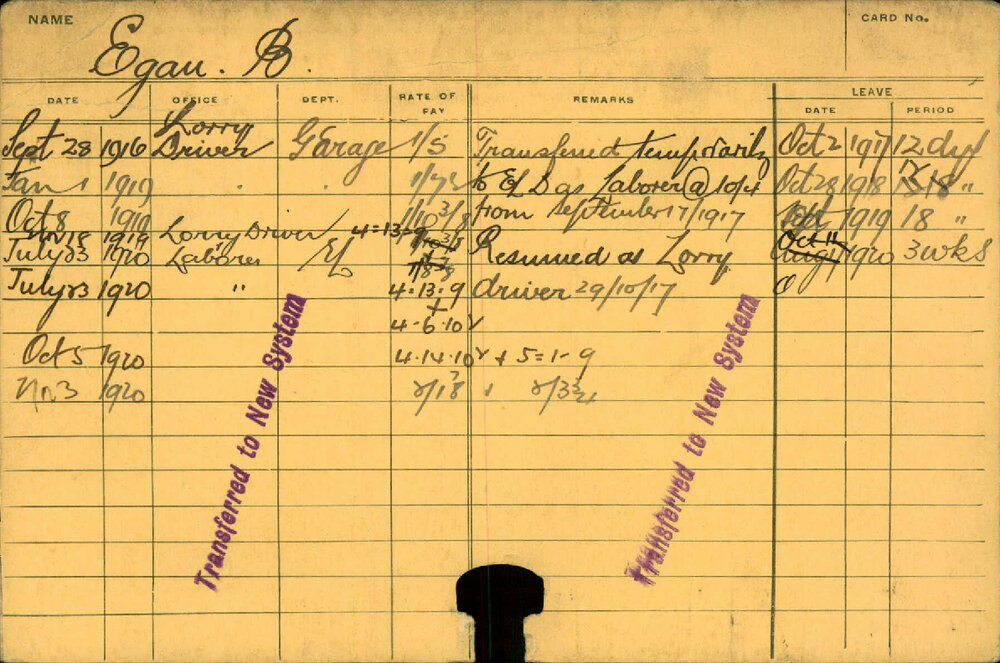 NAME Egan. B. CARD No.
DATE OFFICE DEPT. RATE OF PAY REMARKS LEAVE DATE PERIOD
Sept 28 1916 Lorry Driver Garage 1/5 Transferred temporarily Oct 2 1917 12 days
Jan 1 1919 " " to El D as Laborer @ 10d Oct 28 1918 18 "
Oct 8 1919 1/10 3/8 from September 17/1917 Oct 1919 18 "
Nov 18 1919 Lorry Driver 4=13=9
July 23 1920 Laborer El Resumed as Lorry Oct 11 1920 3 wks
July 23 1920 " 4=13=9 driver 29/10/17
+
4.6.10
Oct 5 1920 4.14.10 + 5=1-9
Nov 3 1920
Transferred to New System
Transferred to New System